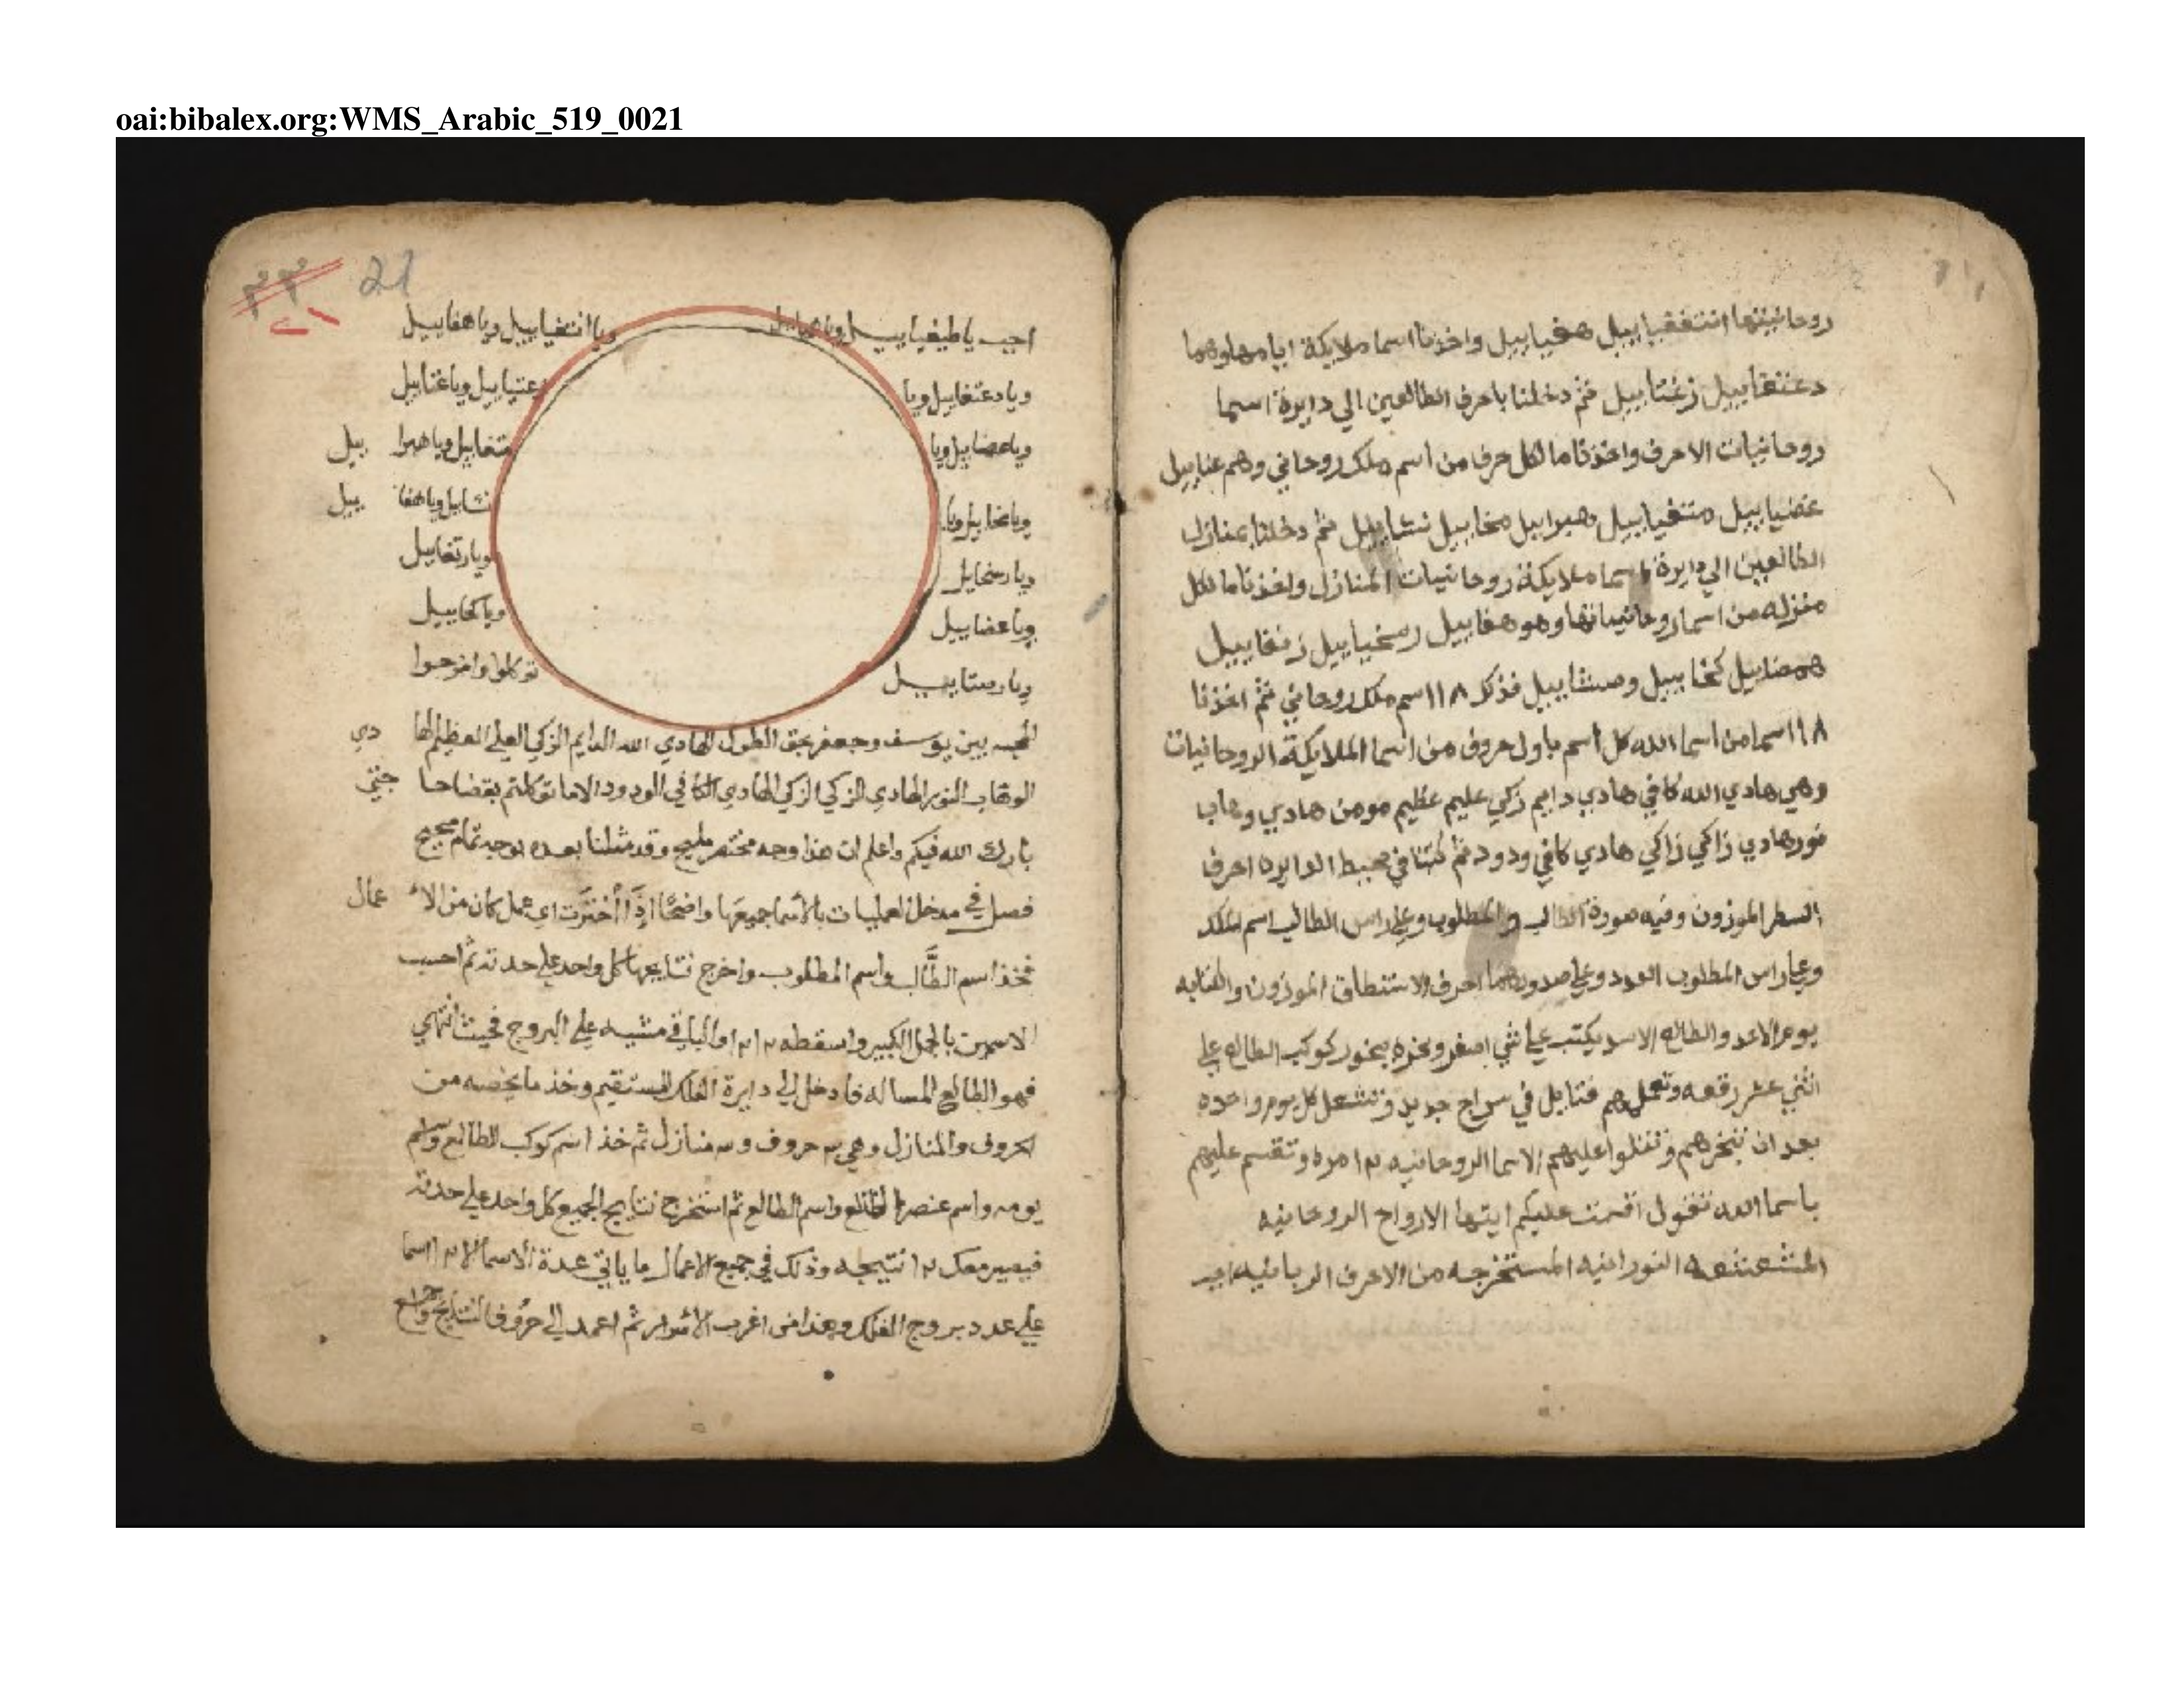 oai:bibalex.org:WMS_Arabic_519_0021
روحانيتها انتغفيابييل هغيابييل واخذنا اسما ملايكة ايامهاوهما
دعنتفابييل زغتابييل ثم دخلنا باحرف الطالعين الي دايرة اسما
روحانيات الاحرف واخذنا ما لكل حرف من اسم ملك روحاني وهم عنابيل
عضيابييل متتغيابييل هبرابيل مخابييل نشابييل ثم دخلنا بمنازل
الطالعين الي دايرة اسما ملايكة روحانيات المنازل واخذنا ما لكل
منزله من اسما روحانياتها وهو هفابييل رسخيابييل زنفابييل
همضابيل كخابييل وصشابييل فذلك ١٨ اسم ملك روحاني ثم اخذنا
١٨ اسما من اسما الله كل اسم باول حروف من اسما الملايكة الروحانيات
وهي هادي الله كافي هادي دايم زكي عليم عظيم مومن هادي وهاب
نور هادي زاكي زاكي هادي كافي ودود ثم كتبنا في محيط الدايره احرف
السطر الموزون وفيه صورة الطالب والمطلوب وعلي راس الطالب اسم الملك
وعلي راس المطلوب العدد وعلي صدورهما احرف الاستنطاق الموزون والكتابه
يوم الاحد والطالع الاسد يكتب علي شي اصفر وبخره ببخور كوكب الطالع علي
اثني عشر رقعه وتعملهم فتايل في سراج جديد وتشعل كل يوم واحده
بعد ان تبخرهم وتتلوا عليهم الاسما الروحانيه ١٢ مره وتقسم عليهم
باسما الله تقول اقسمت عليكم ايتها الارواح الروحانيه
المشعشعه النورانيه المستخرجه من الاحرف الربانيه اجب
٢٢ 21
٢١
اجب ياطيغيابييل ويا ويا انتغيابييل وياهفابييل
ويادعتفابيل ويا عتيابيل وياغتابيل
وياعضابيل ويا متغابيل وياهبرا بيل
ويامخابيل ويا نشابيل وياهفا بيل
ويارسخابل ويارتغابيل
وياعضابييل وياكخابييل
ويارصتابييل توكلوا وامزجوا
المحبه بين يوسف وجعفر بحق الطول الهادي الله الدايم الزكي العلي العظيم الها دي
الوهاب النور الهادي الزكي الزكي الهادي الكافي الودود الاما توكلتم بقضا حا جتي
بارك الله فيكم واعلم ان هذا وجه مختصر مليح وقد مثلنا بعده بوجه تمام صحيح
فصل في مدخل العمليات بالاسما جميعها واضحًا اذا أخترت اي عمل كان من الا عمال
فخذ اسم الطالب واسم المطلوب واخرج نتايجها كل واحد علي حدته ثم احسب
الاسمين بالجمل الكبير واسقطه ١٢ ١٢ والباقي مشيه علي البروج فحيث انتهي
فهو الطالع المساله فادخل الي دايرة الفلك المستقيم وخذ ما يخصه من
الحروف والمنازل وهي حروف و منازل ثم خذ اسم كوكب الطالع واسم
يومه واسم عنصر الطالع واسم الطالع ثم استخرج نتايج الجميع كل واحد علي حدته
فيصير معك ١٢ نتيجه وذلك في جميع الاعمال ما ياتي عدة الاسما الا ١٢ اسما
علي عدد بروج الفلك وهذا من اغرب الاسرار ثم اعمد الي حروف النتايج واجمع